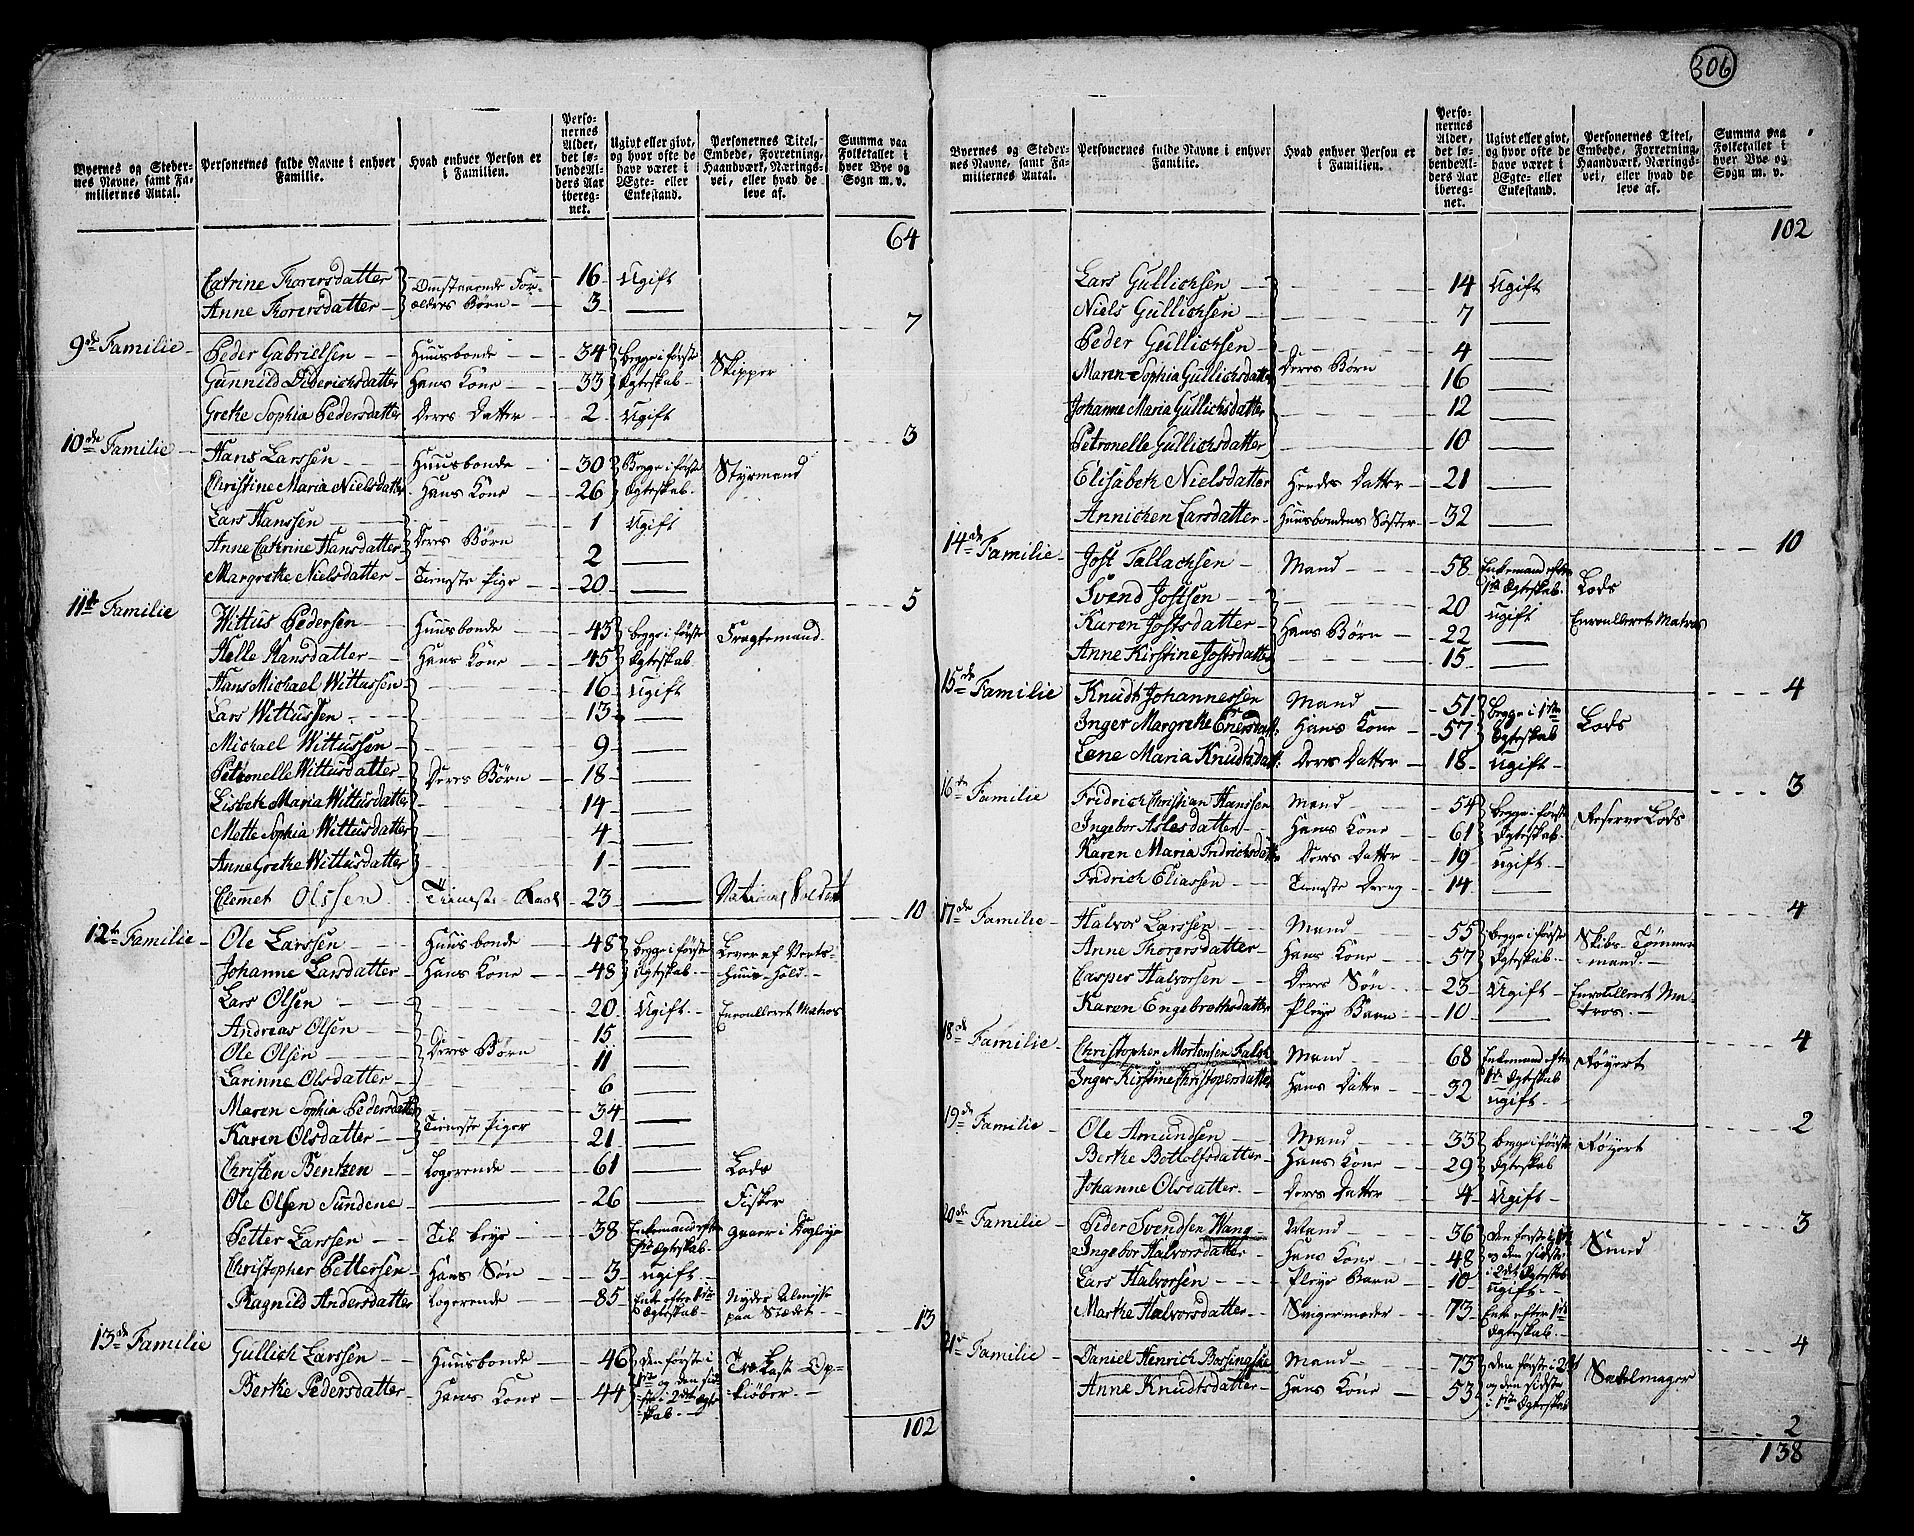 306
Byernes og Steder-
nes Navne, samt Fa-
miliernes Antal.
Personernes fulde Navne i enhver
Familie.
Hvad enhver Person er
i Familien.
Perso-
nernes
Alder,
det lø-
bendeAl-
ders Aar
ibereg-
net.
Ugivt eller givt,
og hvor ofte de
have været i
Ægte- eller
Enkestand.
Personernes Titel,
Embede, Forretning,
Haandværk, Nærings-
vei, eller hvad de
leve af.
Summa paa
Folketallet i
hver Bye og
Sogn m. v.
64
Catrine Thorersdatter Omstaaende For- 16 Ugift
Anne Thorersdatter ældres Børn 3 — 7
9de Familie Peder Gabrielsen Huusbonde 34 begge i første Skipper
Gunnild Diderichsdatter Hans Kone 33 Ægteskab
Grethe Sophia Pedersdatter Deres Datter 2 Ugift 3
10de Familie Hans Larssen Huusbonde 30 Begge i første Styrmand
Christine Maria Nielsdatter Hans Kone 26 Ægteskab
Lars Hanssen 1 Ugift
Anne Cathrine Hansdatter Deres Børn 2 —
Margrethe Nielsdatter Tieneste Pige 20 — 5
11te Familie Wittus Pedersen Huusbonde 43 begge i første Fragtemand
Helle Hansdatter Hans Kone 45 Ægteskab
Hans Michael Wittussen 16 Ugift
Lars Wittussen 13 —
Michael Wittussen 9 —
Petronelle Wittusdatter Deres Børn 18 —
Lisbeth Maria Wittusdatter 14 —
Mette Sophia Wittusdatter 4 —
Anne Grethe Wittusdatter 1 —
Clemet Olssen Tieneste Karl 23 — National Soldat 10
12te Familie Ole Larssen Huusbonde 48 begge i første Lever af Verts-
Johanne Larsdatter Hans Kone 48 Ægteskab Huus-Hold
Lars Olsen 20 Ugift Enroulleret Matros
Andreas Olsen 15 —
Ole Olsen Deres Børn 11 —
Larinne Olsdatter 6 —
Maren Sophia Pedersdatter 34 —
Karen Olsdatter Tieneste Piger 21 —
Christen Bentzen Logerende 61 — Lods
Ole Olsen Sundene — 26 — Fisker
Petter Larssen Til Leye 38 Enkemand efter
1ste Ægteskab
Christopher Pettersen Hans Søn 3 ugift
Ragnild Andersdatter Logerende 85 Enke efter 1ste Nyder Almisse
Ægteskab paa Stædet 13
13de Familie Gullich Larssen Huusbonde 46 Den første i
Berthe Pedersdatter Hans Kone 44 1ste og den sid-
ste i 2det Ægte-
skab
102
Byernes og Steder-
nes Navne, samt Fa-
miliernes Antal.
Personernes fulde Navne i enhver
Familie.
Hvad enhver Person er
i Familien.
Perso-
nernes
Alder,
det lø-
bendeAl-
ders Aar
ibereg-
net.
Ugivt eller givt,
og hvor ofte de
have været i
Ægte- eller
Enkestand.
Personernes Titel,
Embede, Forretning,
Haandværk, Nærings-
vei, eller hvad de
leve af.
Summa paa
Folketallet i
hver Bye og
Sogn m. v.
102
Lars Gullichsen 14 Ugift
Niels Gullichsen 7 —
Peder Gullichsen 4 —
Maren Sophia Gullichsdatter Deres Børn 16 —
Johanne Maria Gullichsdatter 12 —
Petronelle Gullichsdatter 10 —
Elisabeth Nielsdatter Hendes Datter 21 —
Annichen Larsdatter Huusbondens Søster 32 — 10
14de Familie Jost Tallachsen Mand 58 Enkemand efter Lods
1ste Ægteskab
Svend Jostsen 20 ugift Enroulleret Matros
Karen Jostsdatter Hans Børn 22 —
Anne Kirstine Jostsdatter 15 — 4
15de Familie Knudt Johannessen Mand 51 begge i 1ste Lods
Inger Margrethe Enersdatt: Hans Kone 57 Ægteskab
Lene Maria Knudtsdatt: Deres Datter 18 ugift 3
16te Familie Fridrich Christian Hanssen Mand 54 begge i første Reserve Lods
Ingebor Aslesdatter Hans Kone 61 Ægteskab
Karen Maria Fridrichsdatt: Deres Datter 19 ugift
Fridrich Eliassen Tieneste Dreng 14 — 4
17de Familie Halvor Larssen Mand 55 begge i første Skibs-Tømmer-
Anne Thorersdatter Hans Kone 57 Ægteskab mand
Casper Halvorsen Deres Søn 23 Ugift Enroulleret Ma-
Karen Engebrethsdatter Pleye Barn 10 — tros 4
18de Familie Christopher Mortensen Falch Mand 68 Enkemand efter Røyert
1ste Ægteskab
Inger Kirstine Christopersdatter Hans Datter 32 ugift 2
19de Familie Ole Amundsen Mand 33 begge i første Røyert
Berthe Bottolfsdatter Hans Kone 29 Ægteskab
Johanne Olsdatter Deres Datter 4 Ugift 3
20de Familie Peder Svendsen Wang Mand 36 Den første i 1ste Smed
Ingebor Halvorsdatter Hans Kone 48 og den sidste
i 2det Ægteskab
Lars Halvorsen Pleye Barn 10 ugift
Marthe Halvorsdatter Svigermoder 73 Enke efter 1ste
Ægteskab 4
21de Familie Daniel Henrich Mand 73 Den første i 2det Sadelmager
Anne Knudtsdatter Hans Kone 53 og den sidste
i 1ste Ægteskab 2
138